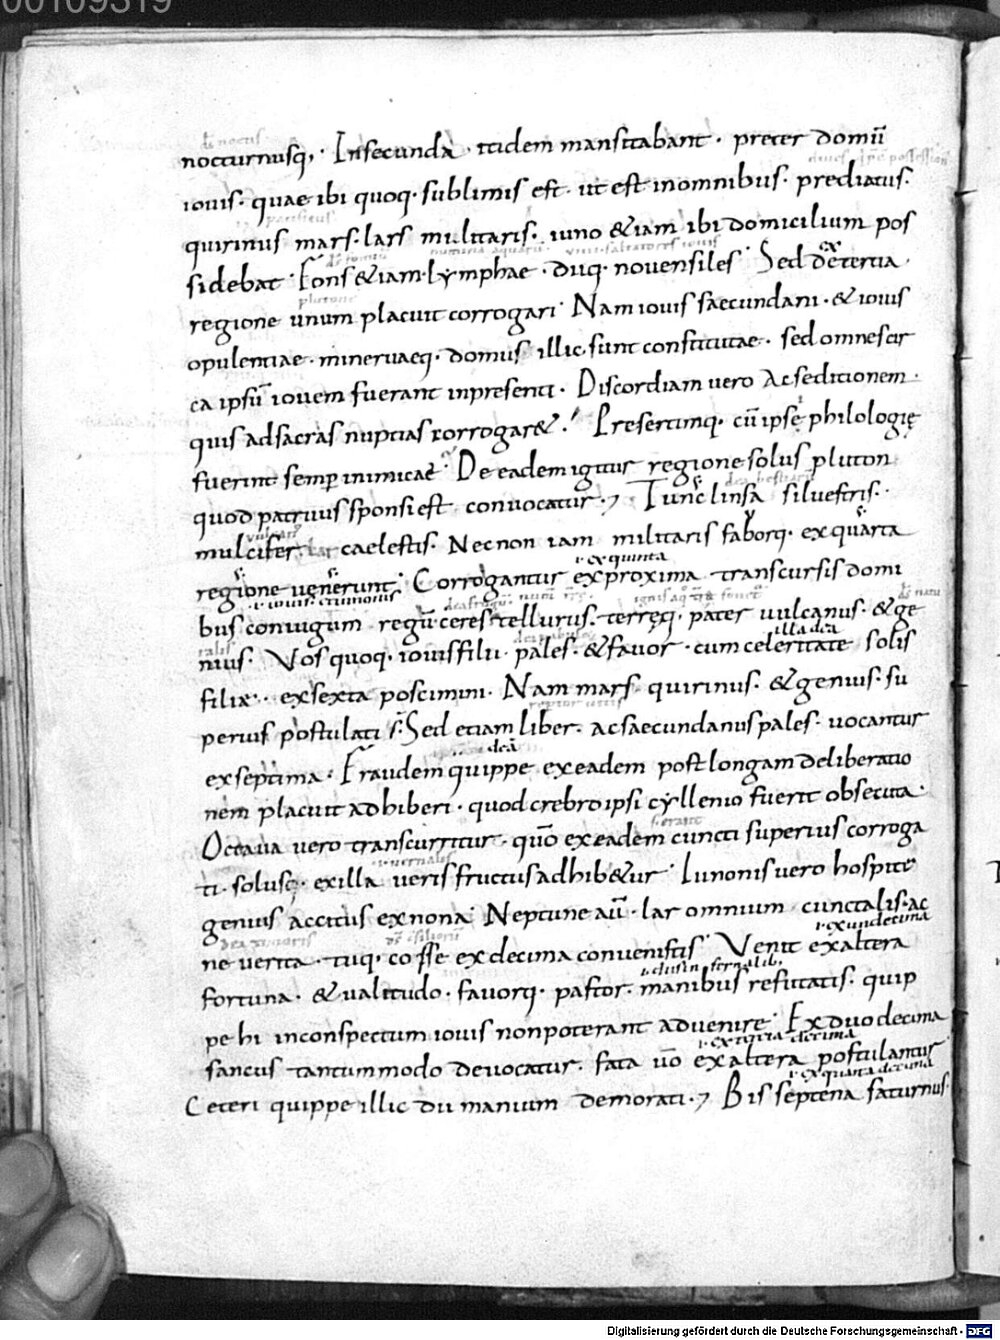 00109319
nocturnusq;· Insecunda· itidem mansitabant· preter domū
iouis· quae ibi quoq· sublimis est· ut est inomnibus· prediatus·
quirinus mars· lars militaris· iuno &iam ibi domicilium pos
sidebat· Fons &iam· lymphae· diiq· nouensiles· Sed detertia·
regione unum placuit corrogari· Nam iouis saecundani· & iouis
opulentiae· mineruaeq· domus illic· sunt constitutae· sed omnescir
ca ipsū iouem fuerant inpresenti· Discordiam uero Acseditionem·
quis adsacras nuptias corrogar&· Presertimq· cū ipse philologię
fuerint semp inimicae· De eadem igitur regione solus pluton
quod patruus sponsi est convocatur· Tunc linsa siluestris·
mulcifer lar caelestis· Necnon iam militaris faborq· ex quarta
regione uenerunt· Corrogantur exproxima transcursis domi
ł ex quinta
bus coniugum regū ceres· tellurus· terręq· pater uulcanus· & ge
nius· Vos quoq· iouis filii· pales· & fauor· cum celeritate solis
filia·· ex sexta poscimini· Nam mars quirinus· & genius· su
perius postulati s̄· Sed etiam liber· ac saecundanus pales· uocantur
exseptima· Fraudem quippe exeadem post longam deliberatio
nem placuit adhiberi· quod crebro ipsi cyllenio fuerit obsecuta·
Octaua uero transcurritur· quō ex eadem cuncti superius corroga
ti· solusq· exilla ueris fructus adhib&ur· Iunonis uero hospite
genius accitus ex nona· Neptune aū· lar omnium cunctalis· ac
ne uerita· tuq· co sse ex decima conuenistis· Venit ex altera
ł ex undecima
fortuna· & ualitudo· fauorq· pastor· manibus refutatis· quip
pe hi inconspectum iouis non poterant aduenire· Ex duodecima
sancus tantummodo deuocatur· fata uō ex altera postulantur
ł ex tertia decima
Ceteri quippe illic dii manium demorati· Bis septena saturnus·
ł ex quarta decima
Digitalisierung gefördert durch die Deutsche Forschungsgemeinschaft - DFG